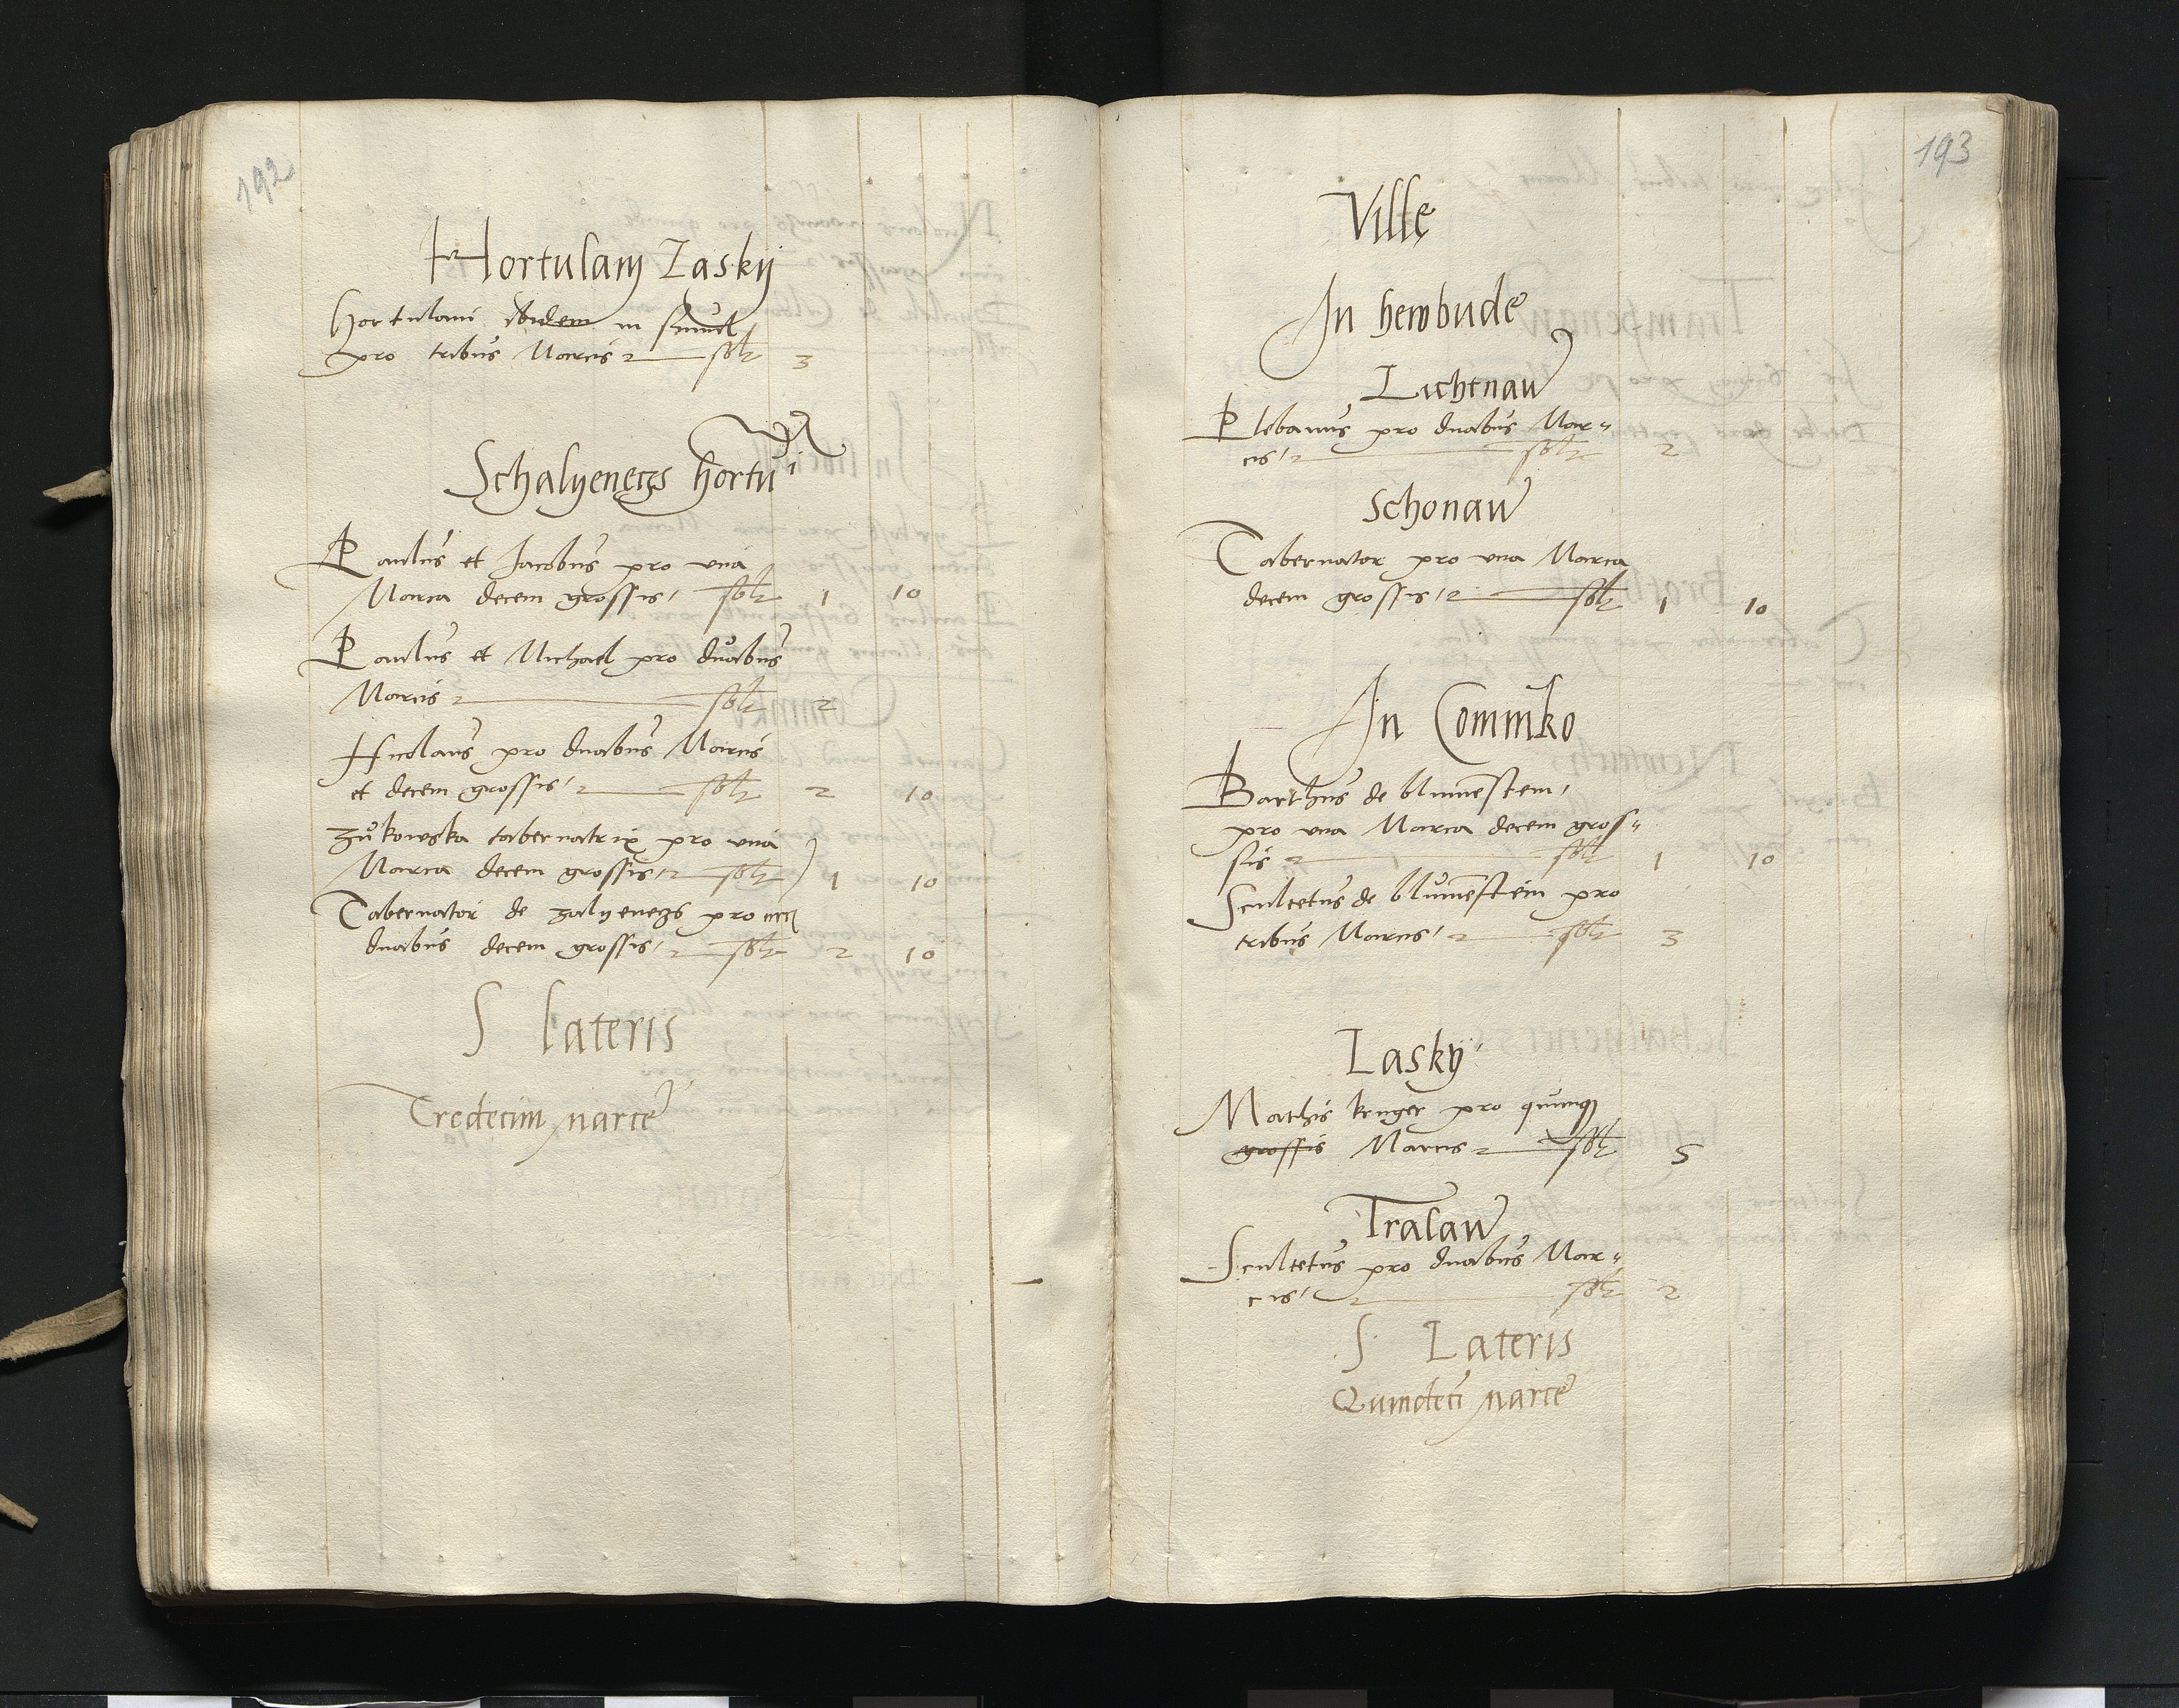 192
Hortulany Laskij
Hortulani ibidem in simul
pro tribus Marcis solt 3
Schalyeneczs hortu
Paulus et Jacobus pro una
Marca decem grossis solt 1 10
Paulus et Michael pro duabus
Marcis solt 2
Nicolaus pro duabus Marcis
et decem grossis solt 2 10
Zukowska tabernatrix pro una
Marca decem grossis solt 1 10
Tabernator de Zalyenezs pro
duabus decem grossis solt 2 10
S Lateris
Tredecim marce
193
Ville
In hewbude
Lichtnaw
Plebanus pro duabus Mar„
cis solt 2
Schonaw
Tabernator pro una Marca
decem grossis solt 1 10
In Commko
Barthus de blumestein
pro una Marca decem gros„
sis solt 1 10
Scultetus de blumestein pro
tribus Marcis solt 3
Laskÿ
Mathis kruger pro quinq
grossis Marcis solt 5
Tralaw
Scultetus pro duabus Mar„
cis solt 2
S Lateris
Quindeci marce